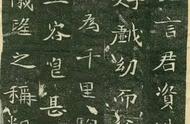 言君資
好戲幼而
為千里
容皃甚
儀隆之稱